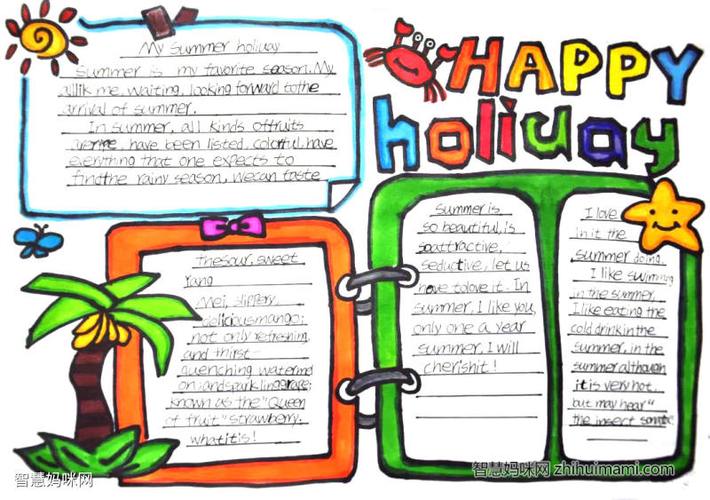 HAPPY
holiday
My Summer holiday
Summer is my favorite season. My
allik me, waiting, looking forward tothe
arrival of summer.
In summer, all kinds offruits
have been listed, colorful, have
everything that one expects to
findthe rainy season, wecan taste
thesour, sweet
rang
Mei, slippery,
deliciousmango;
not only refreshing,
and thirst-
quenching waterme
on; andsparklinggrape;
known as the "Queen
of fruit" strawberry.
whatitis!
summer is
so beautiful, is
soattractive,
seductive, let us
have tolove it. In
summer, I like you,
only one a year
summer, I will
cherishit!
I love
in it the
summer doing.
I like swimming
in the summer,
I like eating the
cold drinkinthe
summer, in the
summer although
it is very hot,
but may hear"
the insect
智慧妈咪网
智慧妈咪网 zhihuimami.com